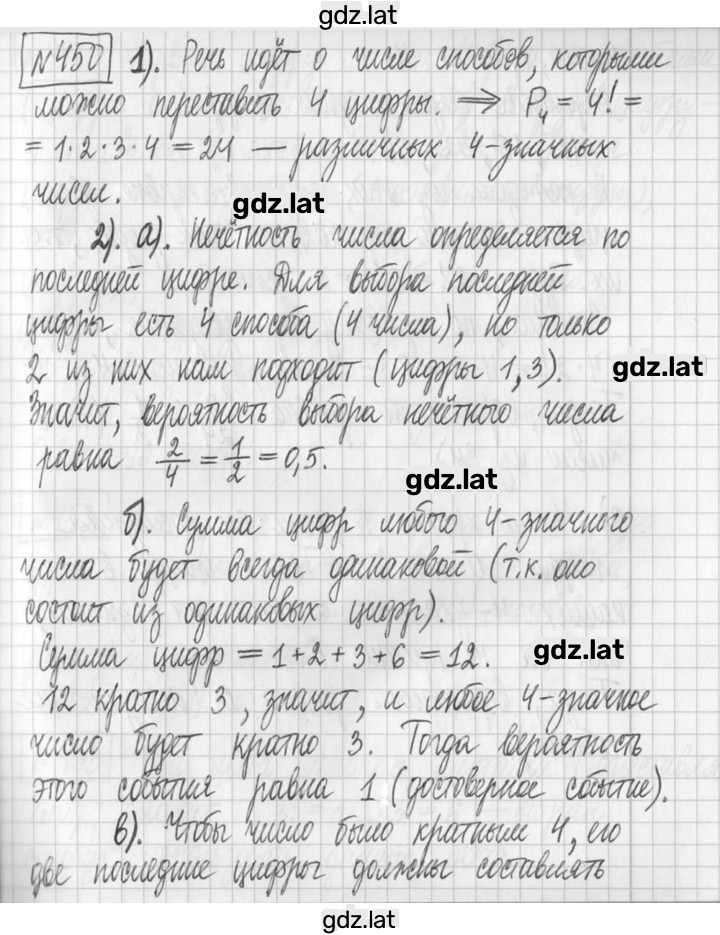 gdz.lat
№450 1). Речь идёт о числе способов, которыми
можно переставить 4 цифры. ⟹ P₄ = 4! =
= 1·2·3·4 = 24 — различных 4-значных
чисел.
gdz.lat
2). а). Нечётность числа определяется по
последней цифре. Для выбора последней
цифры есть 4 способа (4 числа), но только
2 из них нам подходит (цифры 1,3).
gdz.lat
Значит, вероятность выбора нечётного числа
равна 2/4 = 1/2 = 0,5.
gdz.lat
б). Сумма цифр любого 4-значного
числа будет всегда одинаковой (т.к. оно
состоит из одинаковых цифр).
Сумма цифр = 1+2+3+6 = 12.
gdz.lat
12 кратно 3, значит, и любое 4-значное
число будет кратно 3. Тогда вероятность
этого события равна 1 (достоверное событие).
в). Чтобы число было кратным 4, его
две последние цифры должны составлять
gdz.lat